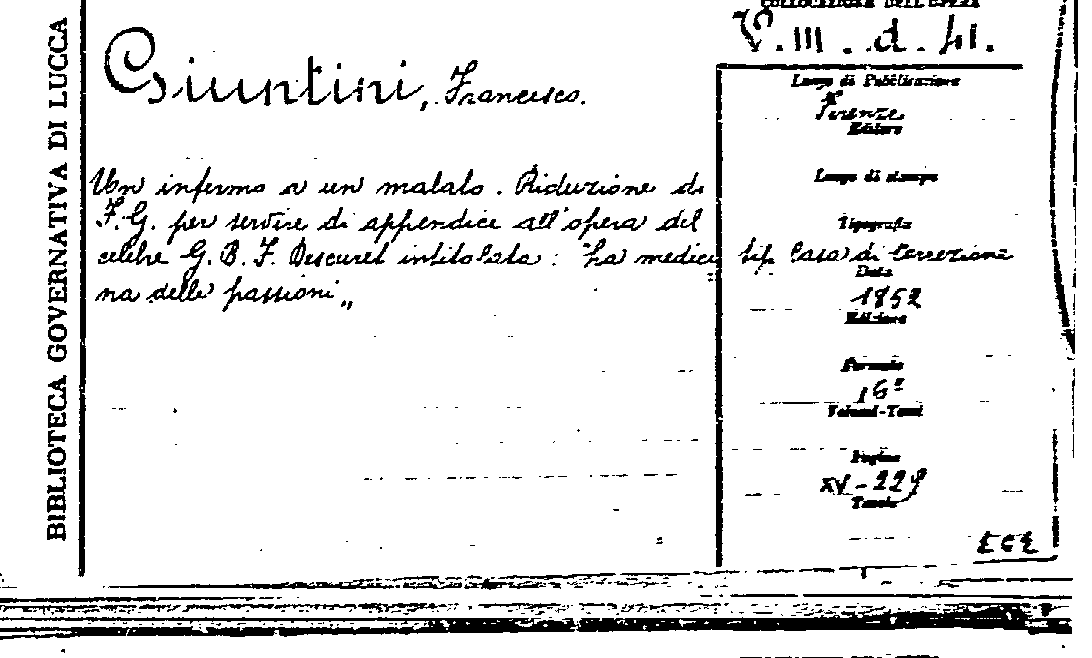 BIBLIOTECA GOVERNATIVA DI LUCCA
COLLOCAZIONE DELL'OPERA
V. III. d. 41.
Giuntini, Francesco.
Un infermo a un malato. Riduzione di
F. G. per servire di appendice all'opera del
celebre G. B. F. Descuret intitolata: "La medici
na delle passioni„
Luogo di Pubblicazione
Firenze
Editore
Luogo di stampa
Tipografia
tip. Casa di Correzione
Data
1852
Edizione
Formato
16°
Volumi-Tomi
Pagine
XV-229
Tavole